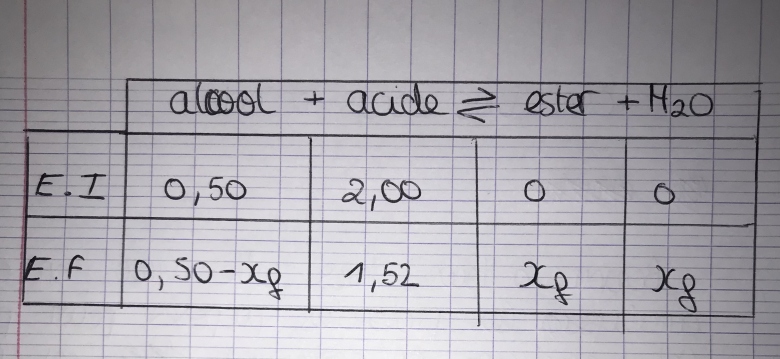 alcool + acide ⇌ ester + H2O
E.I 0,50 2,00 0 0
E.F 0,50-xf 1,52 xf xf